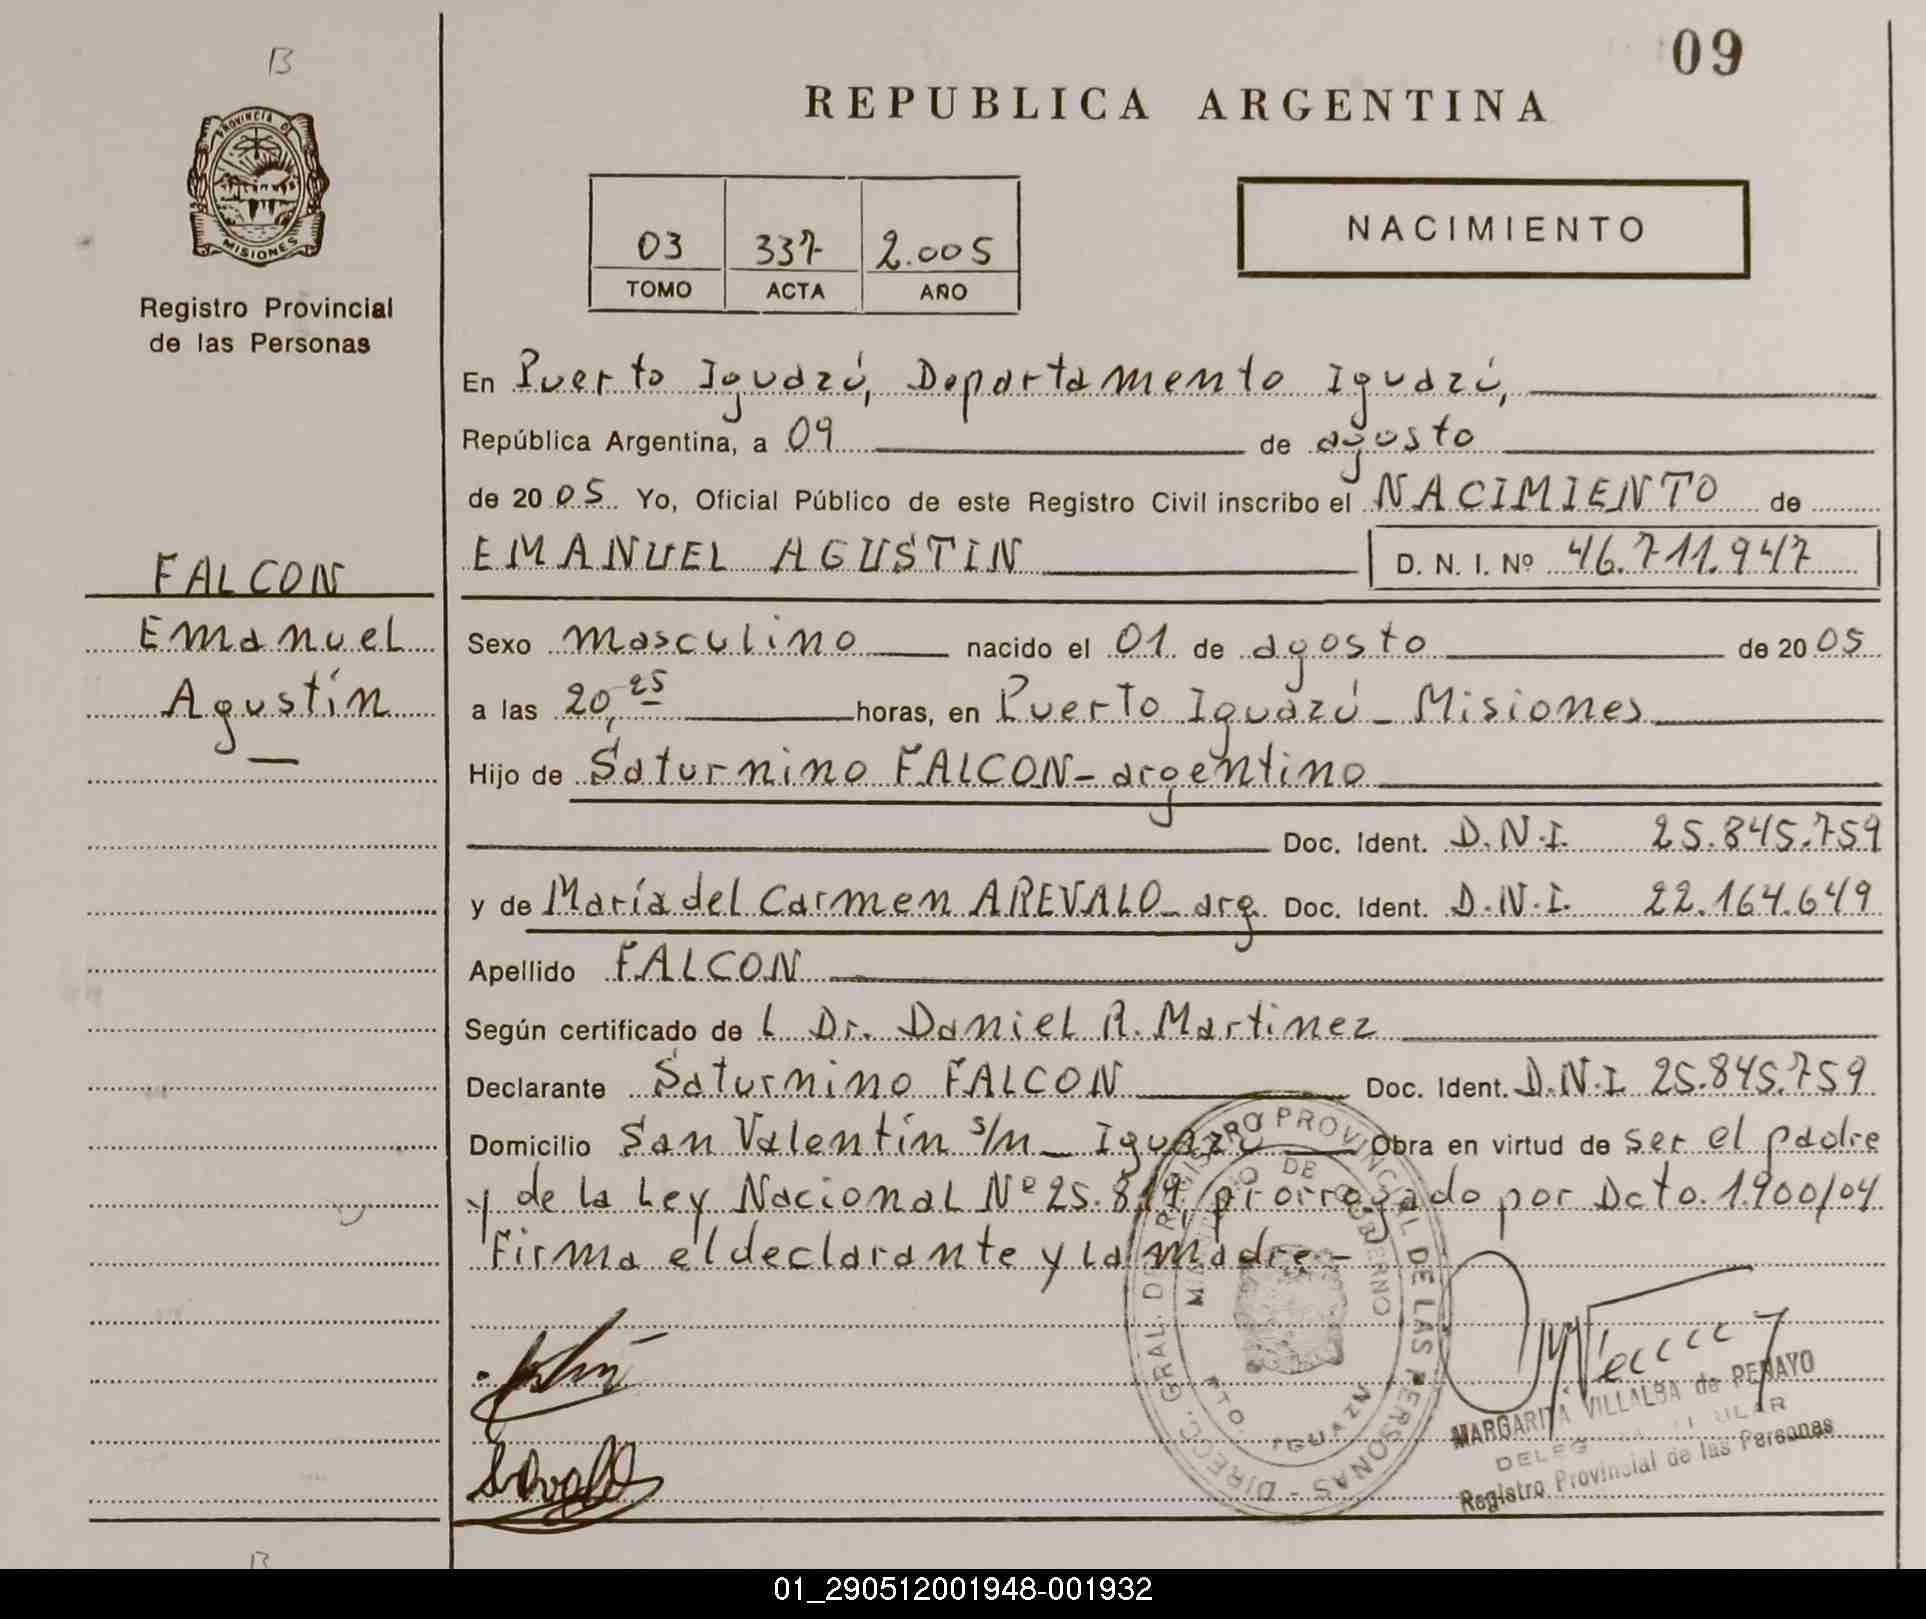 B
09
REPUBLICA ARGENTINA
PROVINCIA DE
MISIONES
Registro Provincial
de las Personas
03 337 2.005
TOMO ACTA AÑO
NACIMIENTO
En Puerto Iguazú, Departamento Iguazú,
República Argentina, a 09 de agosto
de 2005 Yo, Oficial Público de este Registro Civil inscribo el NACIMIENTO de
EMANUEL AGUSTIN D. N. I. Nº 46.711.947
FALCON
Emanuel
Agustín
Sexo masculino nacido el 01 de agosto de 2005
a las 20,25 horas, en Puerto Iguazú - Misiones
Hijo de Saturnino FALCON - argentino
Doc. Ident. D.N.I. 25.845.759
y de María del Carmen AREVALO - arg. Doc. Ident. D.N.I. 22.164.649
Apellido FALCON
Según certificado de l Dr. Daniel R. Martinez
Declarante Saturnino FALCON Doc. Ident. D.N.I. 25.845.759
Domicilio San Valentín s/n - Iguazú Obra en virtud de ser el padre
y de la Ley Nacional Nº 25.819, prorrogado por Dcto. 1.900/04
Firma el declarante y la madre -
DIRECC. GRAL. DE REGISTRO PROVINCIAL DE LAS PERSONAS -
MINISTERIO DE GOBIERNO
PTO. IGUAZU
MARGARITA VILLALBA de PENAYO
Registro Provincial de las Personas
B
01_290512001948-001932